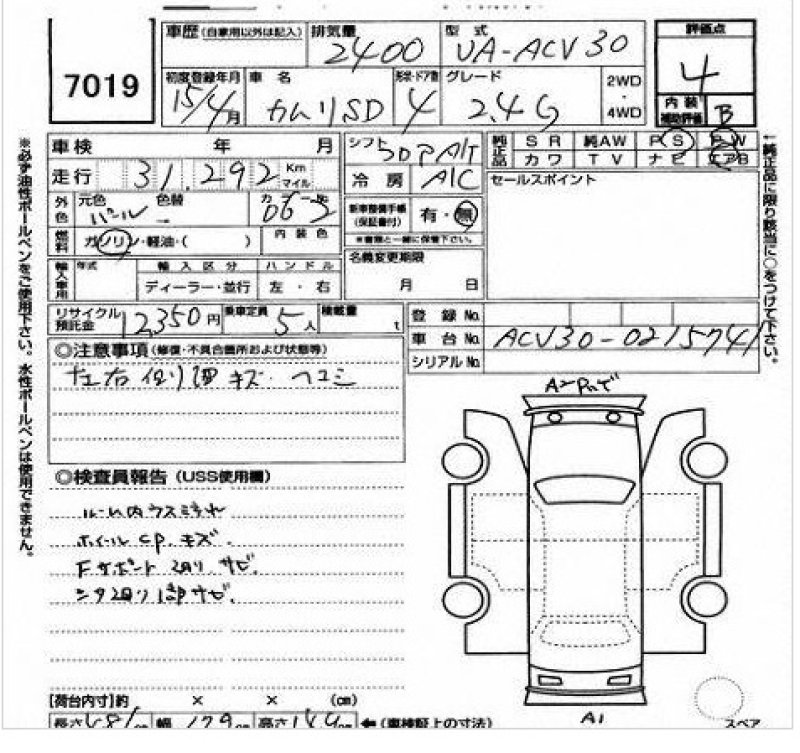 7019
車歴(自家用以外は記入) 排気量 2400 型式 UA-ACV30
評価点 4
内装補助評価 B
初度登録年月 15/4月 車名 カムリSD 形状・ドア数 4 グレード 2.4G 2WD・4WD
車検 年 月 シフト 5DアA/T 純正品 SR 純AW PS PW
カワ TV ナビ エアB
走行 31,292 Km マイル 冷房 A/C セールスポイント
外色 元色 パール 色替 カラーNo 062
新車整備手帳(保証書付) 有・無
※書類と一緒に保管下さい。
燃料 ガソリン・軽油・( ) 内装色
輸入車用 年式 輸入区分 ハンドル 名義変更期限
ディーラー・並行 左・右 月 日
リサイクル預託金 12350円 乗車定員 5人 積載量 t
登録No.
車台No. ACV30-0215741
シリアルNo.
◎注意事項(修復・不具合箇所および状態等)
左右 キズ・ヘコミ
◎検査員報告(USS使用欄)
ルーム内ウスヨゴレ
ホイールcp.キズ.
Fサポート 廻り.サビ.
シタ廻り1部サビ.
[荷台内寸]約 × × (cm)
長さ481 幅 179 高さ ←(車検証上の寸法)
A1
スペア
※必ず油性ボールペンをご使用下さい。水性ボールペンは使用できません。
←純正品に限り該当に○をつけて下さい。